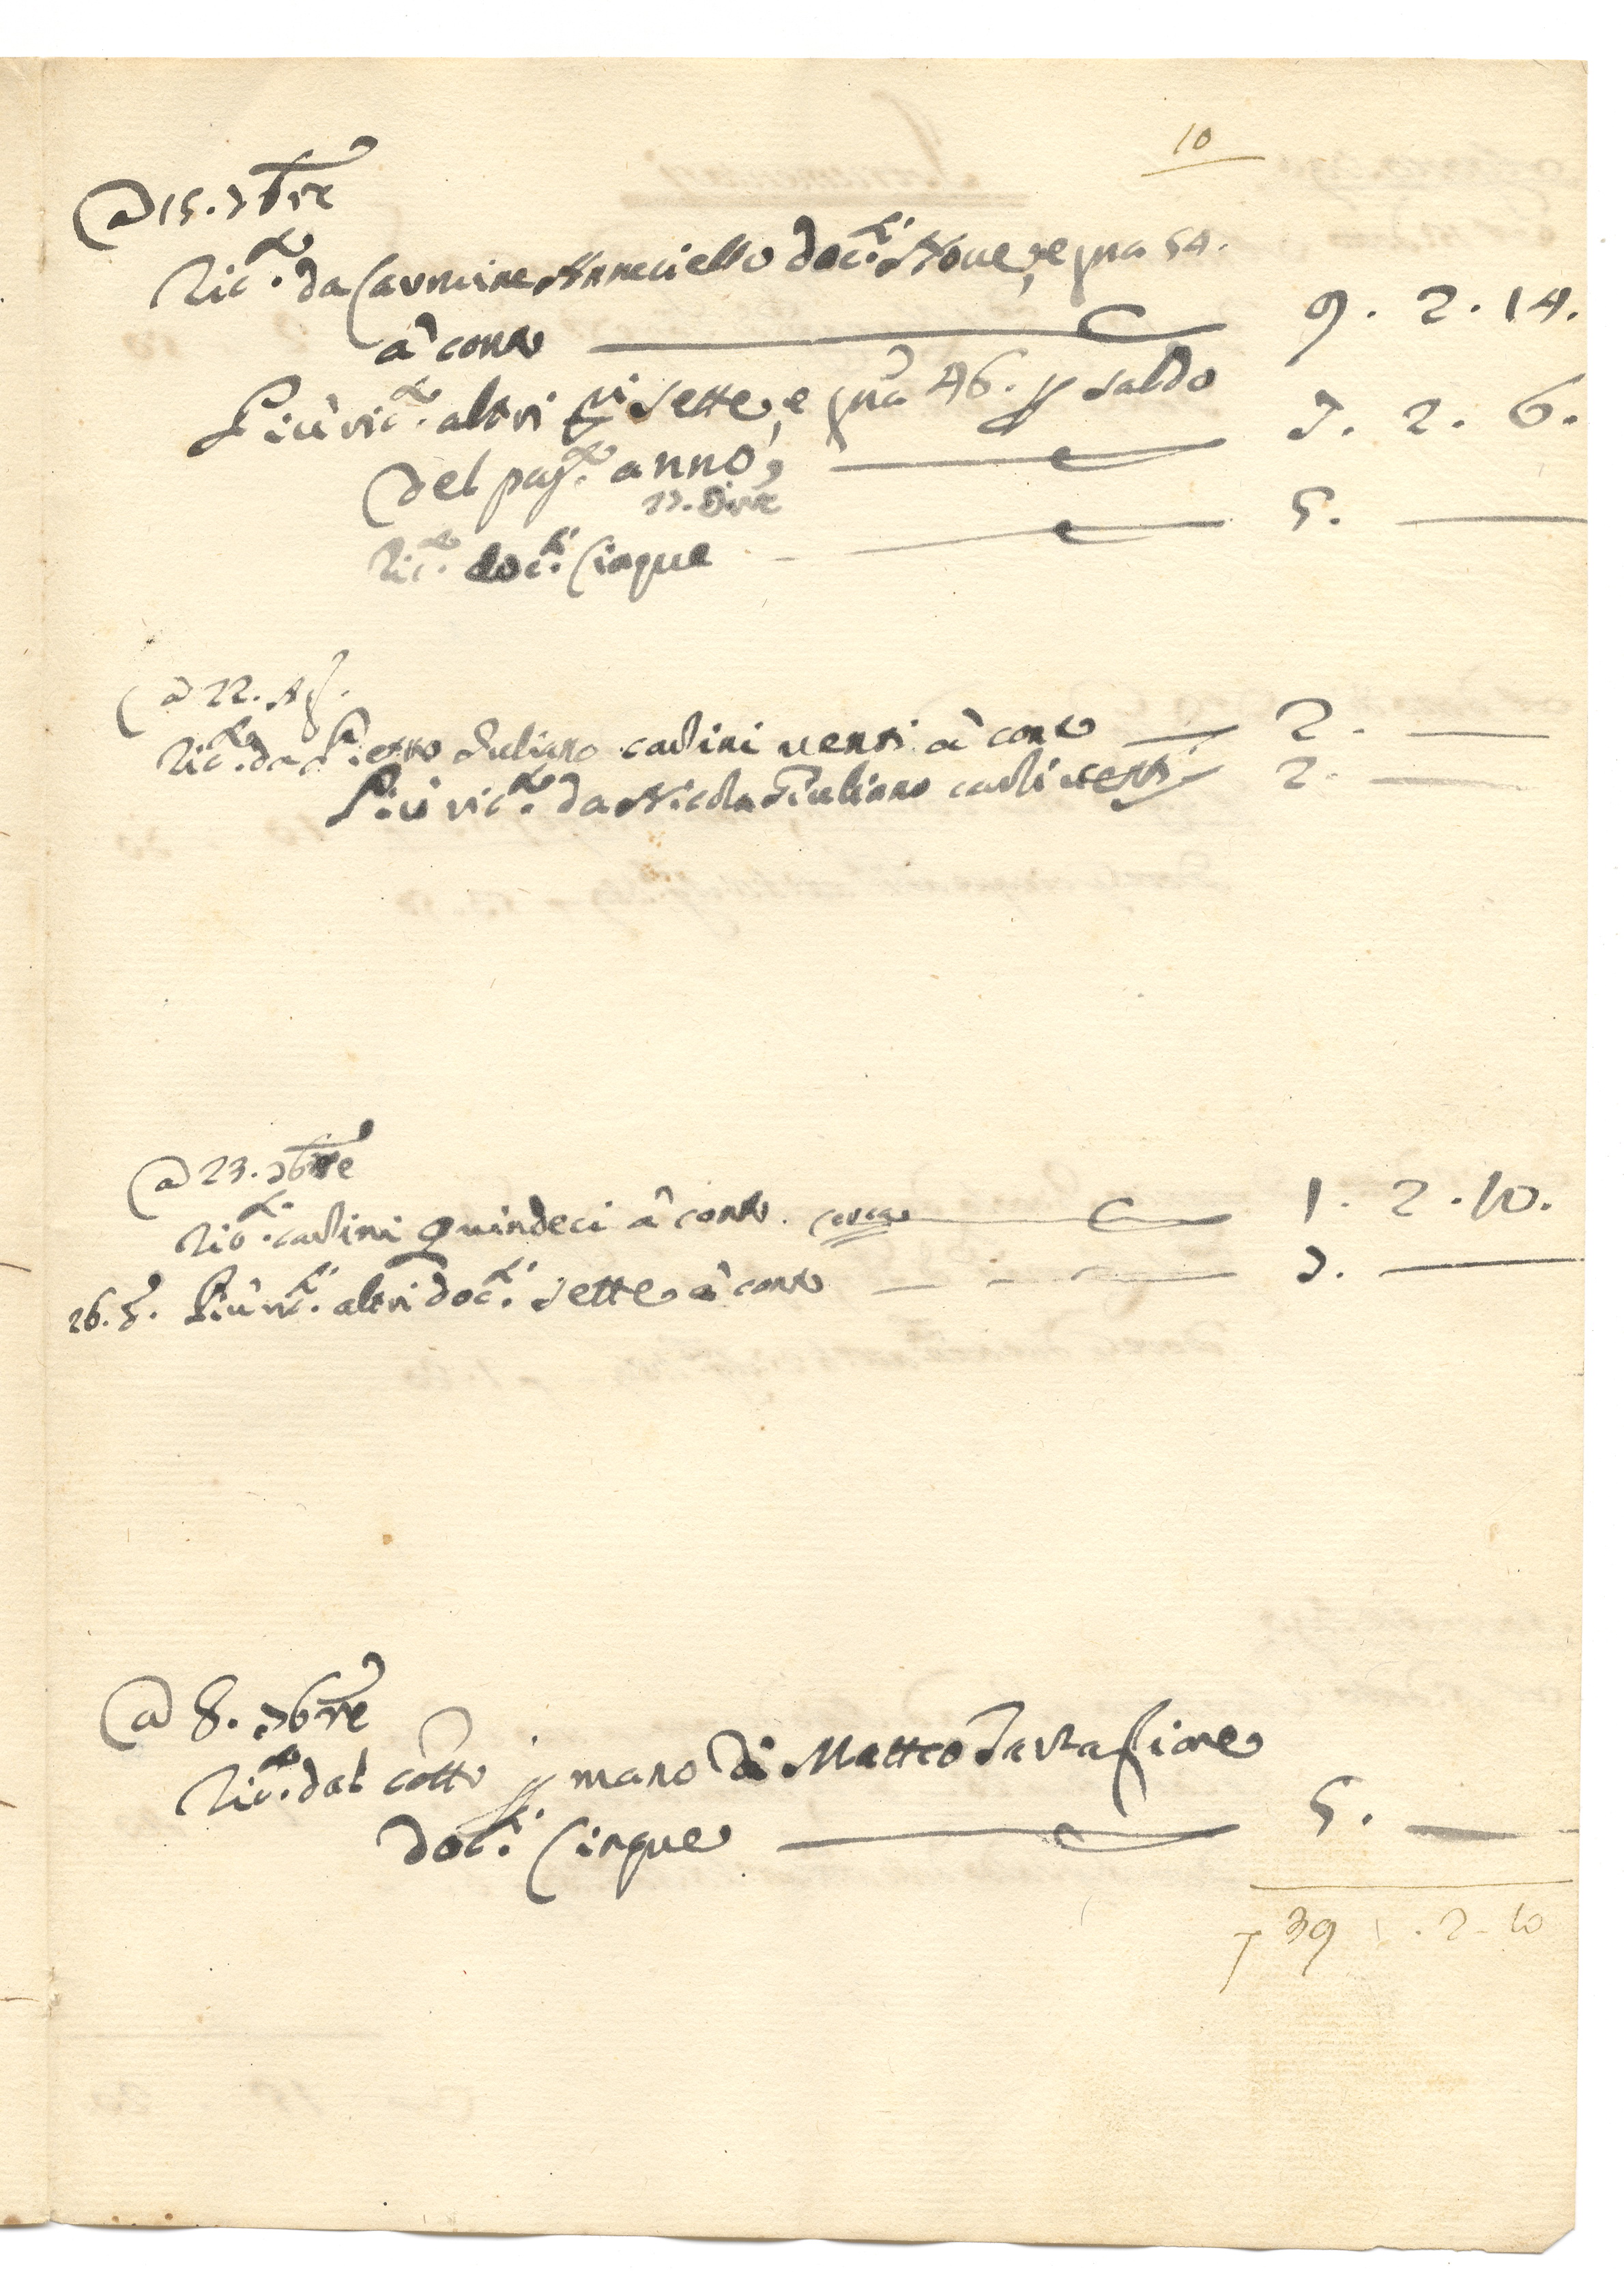 10
a 15. 7bre
Ric.to da Carmine Anneciello doc.ti Nove, e gna 54.
à conto 9. 2. 14.
Più ric.to altri sette, e gna 46. p saldo
del pass.to anno, 7. 2. 6.
Ric.to doc.ti Cinque 5.
a 22. Ag.
Ric.to da Giuliano carlini venti à conto 2.
Più ric.to da Nicola Giuliano carli venti 2.
a 23. 7bre
Ric.to carlini quindeci à conto 1. 2. 10.
26. Più ric.ti altri doc.ti sette à conto 7.
a 8. 7bre
Ric.to dal cotto p mano di Matteo Tartaglione
doc.ti Cinque 5.
39 . 2. 10